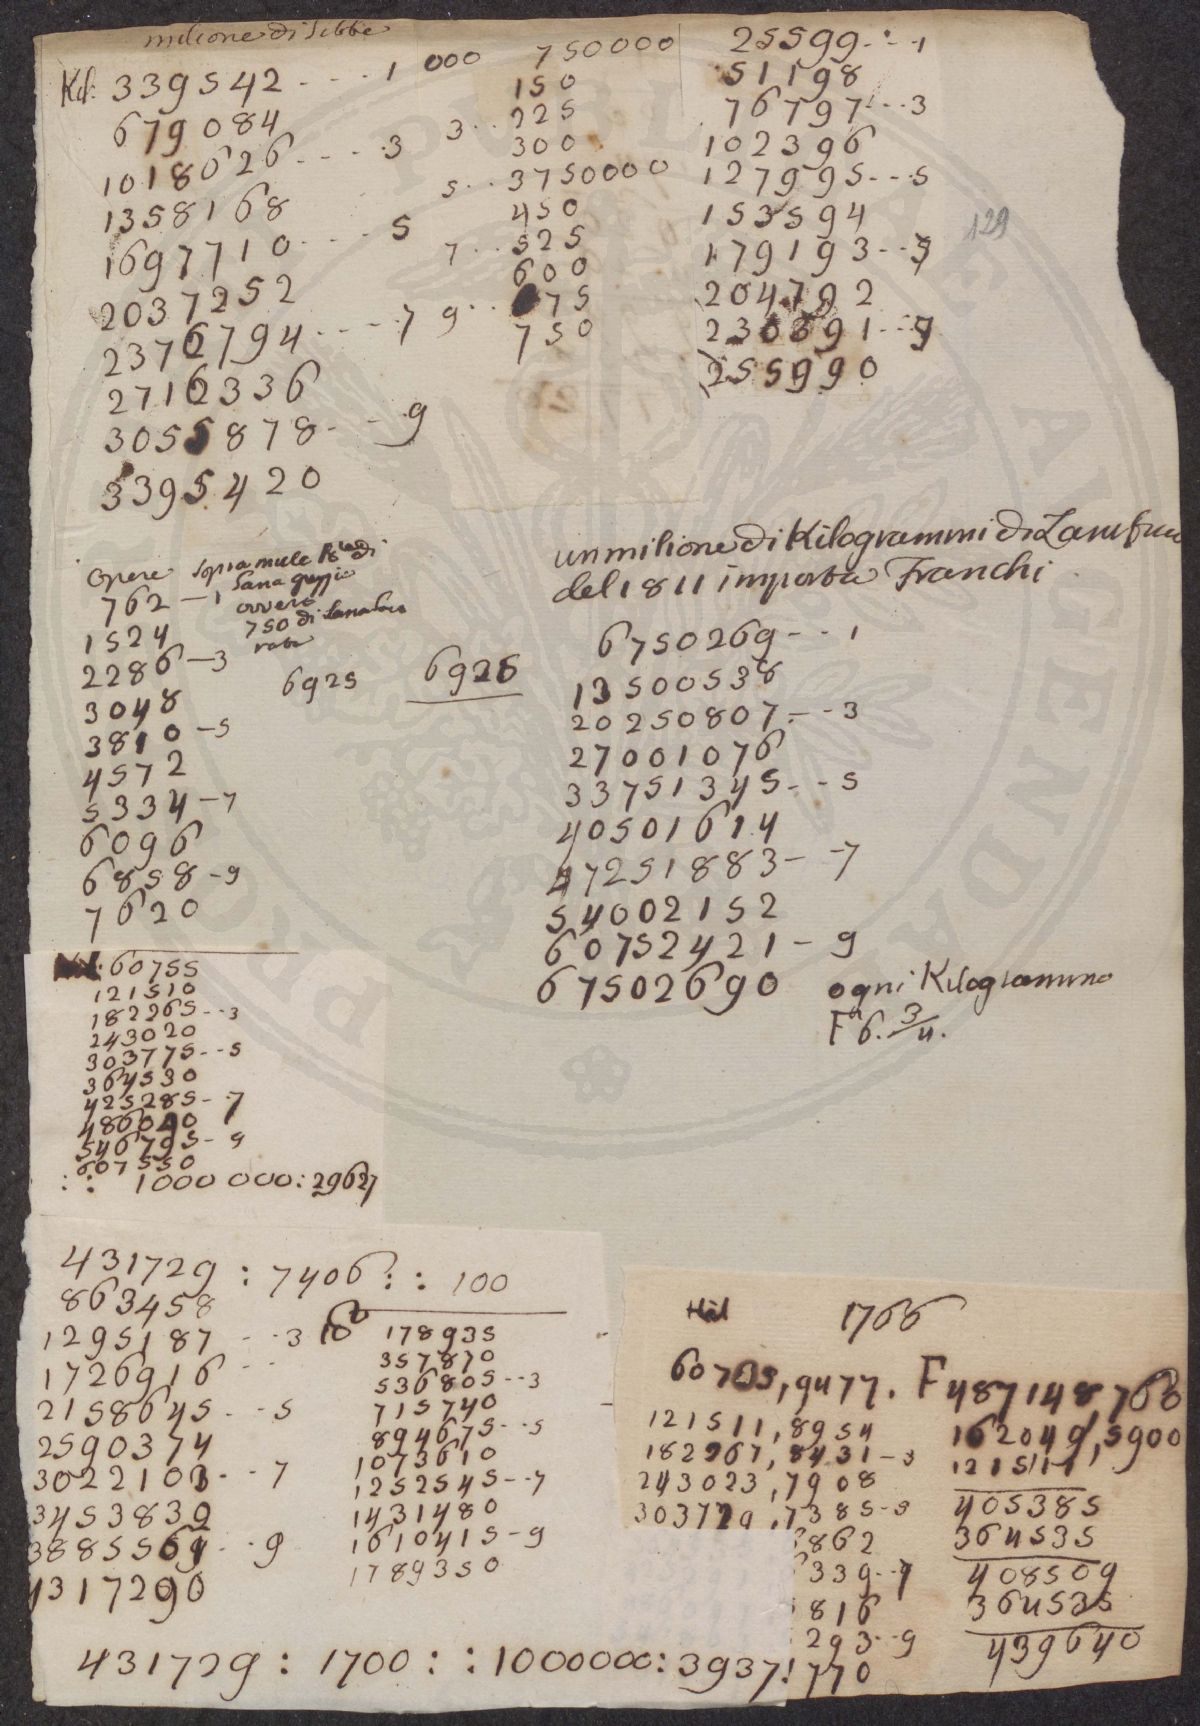 milione di libbe
Kil: 339542 - - - - 1 000
679084
1018626 - - - - 3
1358168
1697710 - - - - 5
2037252
2376794 - - - - 7
2716336
3055878 - - - 9
3395420
750000
150
3 - - 225
300
5 - - - 3750000
450
7 - - 525
600
9 - - - 675
750
25599 - - - 1
51198
76797 - - - 3
102396
127995 - - - 5
153594
179193 - - 7
204792
230391 - - 9
255990
129
opere sopra mule di
762 - 1 Lana greggia
ovvero
750 di Lana lavo
rata
1524
2286 - 3
3048
3810 - 5
4572
5334 - 7
6096
6858 - 9
7620
6925 6926
un milione di Kilogrammi di
del 1811 importa Franchi
6750269 - - - 1
13500538
20250807 - - - 3
27001076
33751345 - - - 5
40501614
47251883 - - 7
54002152
60752421 - 9
67502690
ogni Kilogrammo
F 6. 3/4.
60755
121510
182265 - - 3
243020
303775 - - - 5
364530
425285 - - 7
486040
546795 - - 9
607550
: : 1000 000 : 29627
431729 : 7406 : : 100
863458
1295187 - - - 3
1726916 - -
2158645 - - - 5
2590374
3022103 - - - 7
3453832
3885561 - - - 9
4317290
178935
357870
536805 - - 3
715740
894675 - - - 5
1073610
1252545 - - 7
1431480
1610415 - 9
1789350
1766
60755,9477. F 487148760
121511,8954
182267,8431 - 3
243023,7908
303779,7385 - 5
8862
6339 - - 7
816
293 - - 9
770
162049,5900
121511
405385
364535
408509
364535
439640
431729 : 1700 : : 1000000 : 3937 !
PUBL